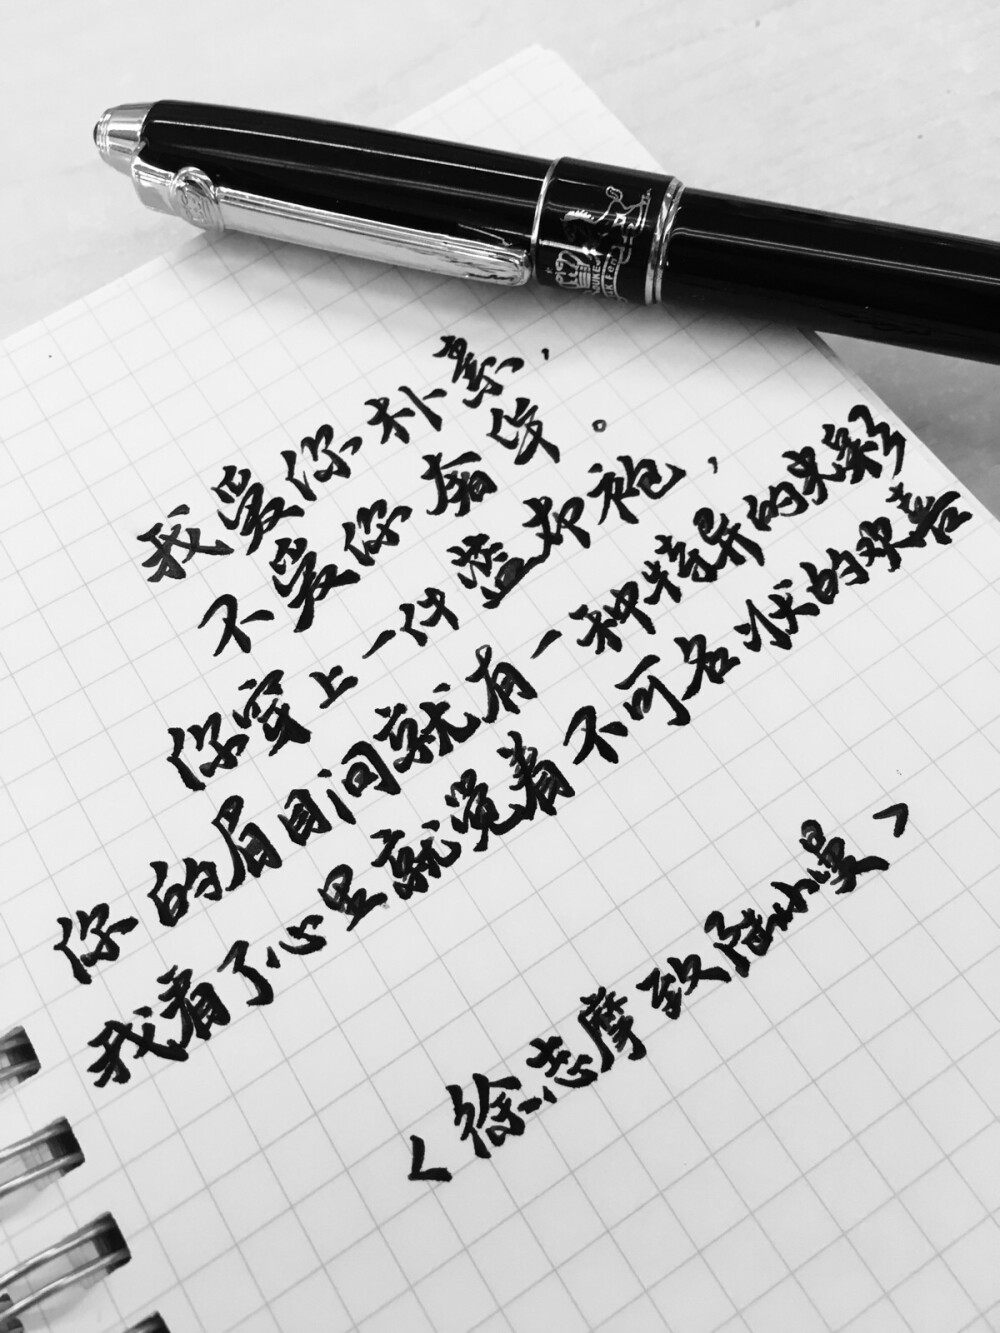 DUKE
我爱你朴素，
不爱你奢华。
你穿上一件蓝布袍，
你的眉目间就有一种特异的光彩
我看了心里就觉着不可名状的欢喜
<徐志摩致陆小曼>